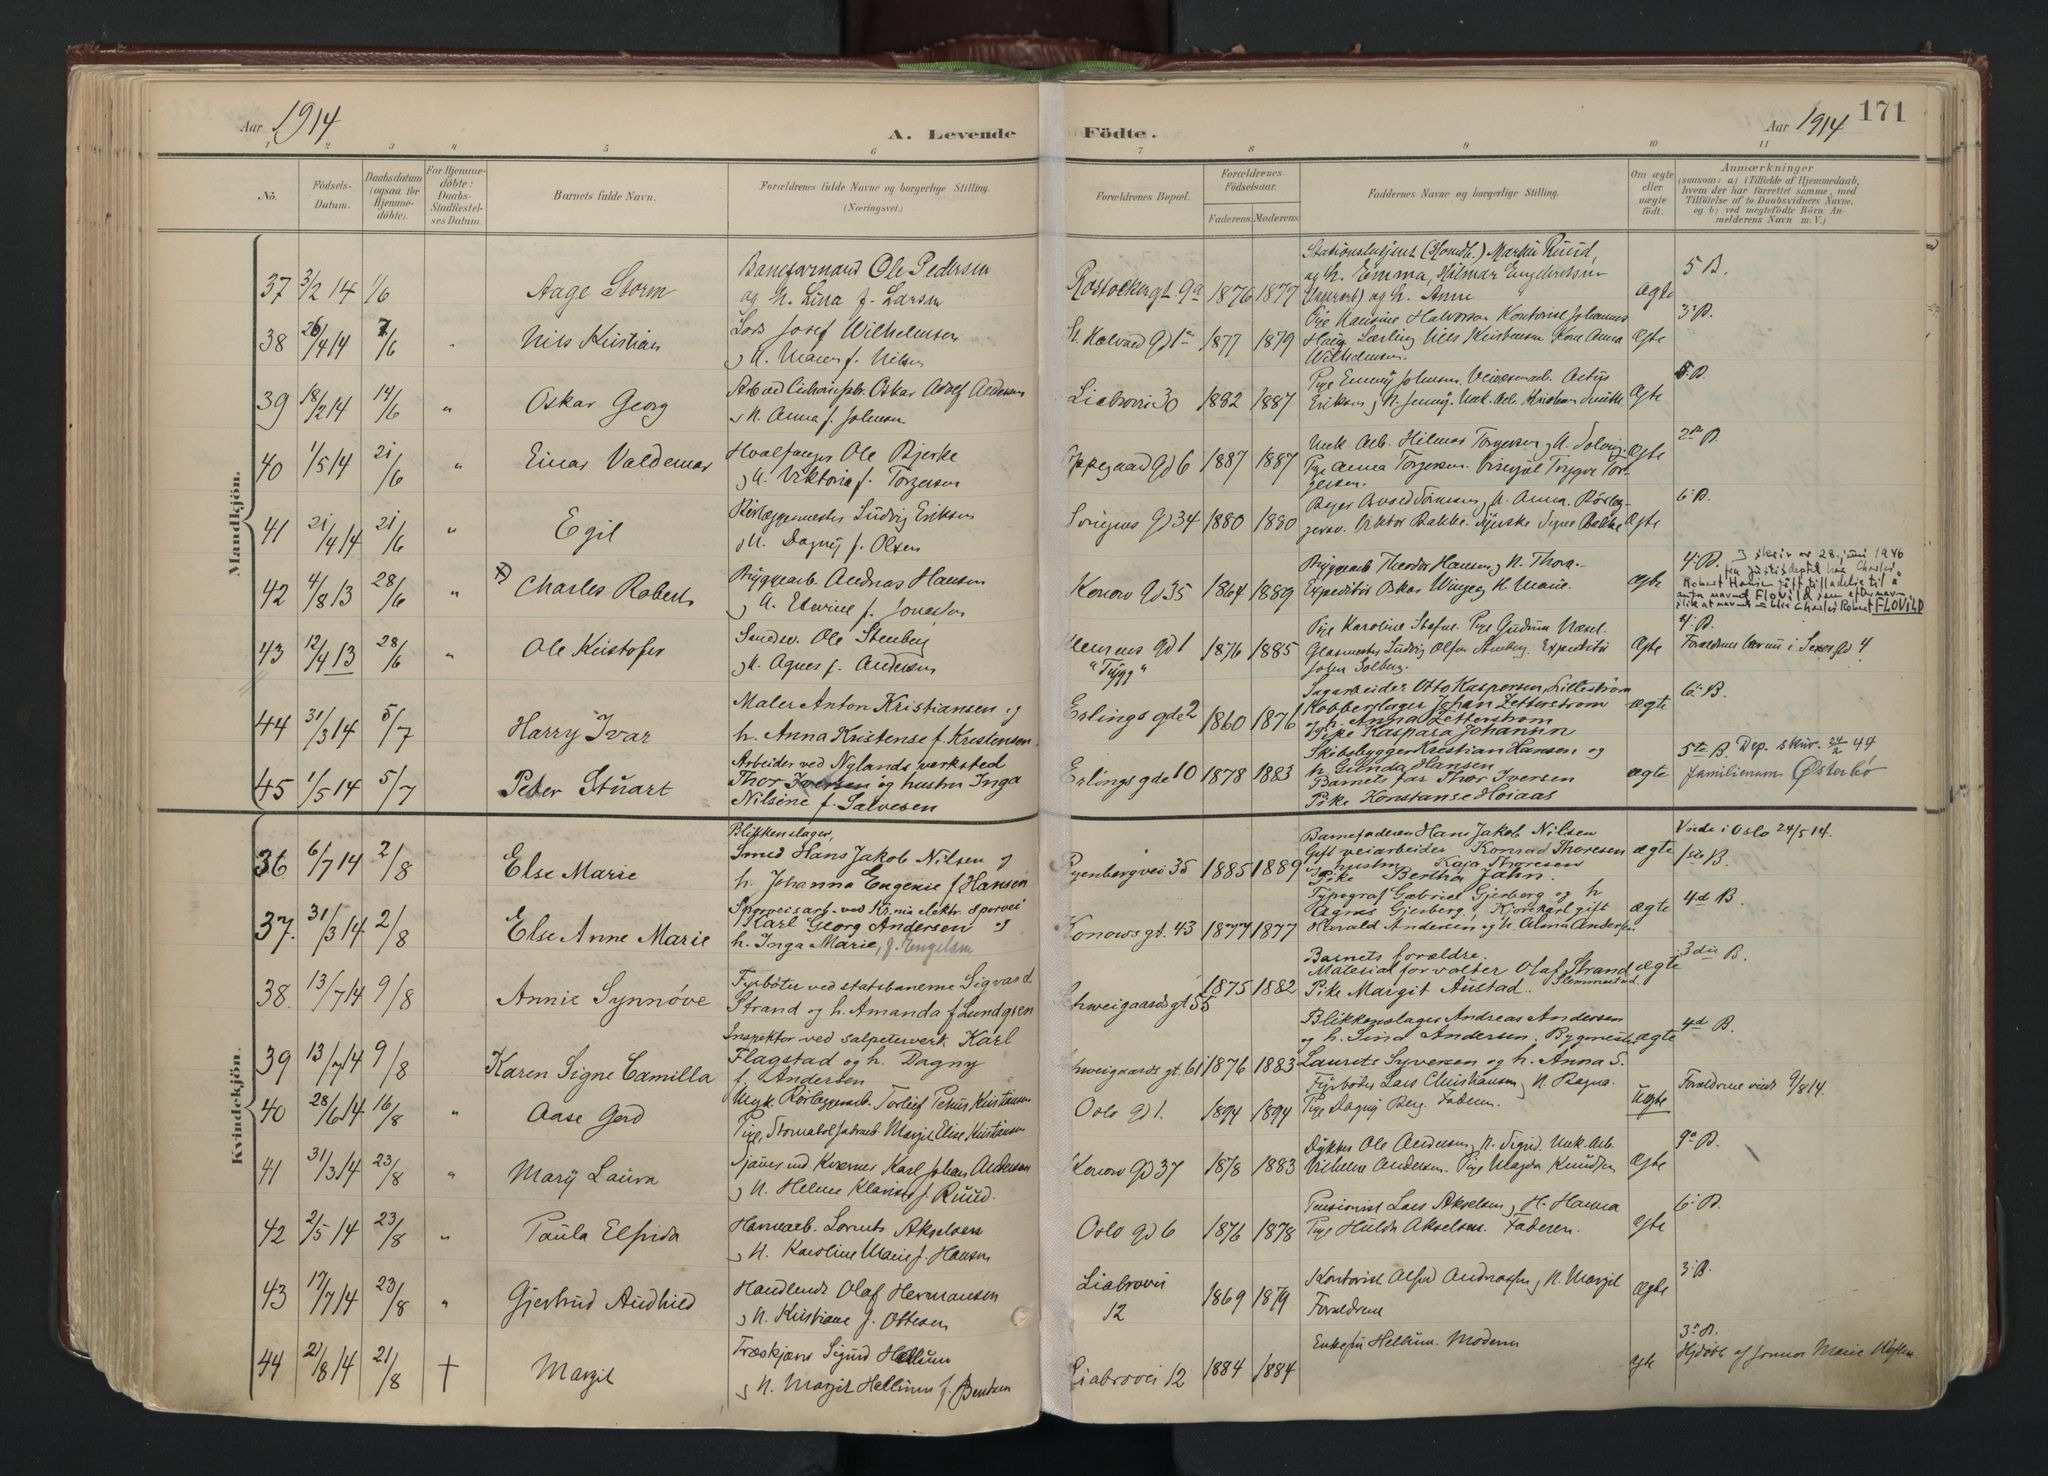 Aar 1914
A. Levende Födte.
Aar 1914
171
1 2 3 4 5 6 7 8 9 10 11
No.
Födsels-
Datum.
Daabsdatum
(ogsaa for
Hjemme-
döbte).
For Hjemme-
döbte:
Daabs-
Stadfæstel-
ses Datum.
Barnets fulde Navn.
Forældrenes fulde Navne og borgerlige Stilling.
(Næringsvei.)
Forældrenes Bopæl.
Forældrenes
Födselsaar.
Faderens. Moderens.
Faddernes Navne og borgerlige Stilling.
Om ægte
eller
uægte
födt.
Anmærkninger
(saasom: a) i Tilfælde af Hjemmedaab,
hvem der har forrettet samme, med
Tilföielse af to Daabsvidners Navne,
og b) ved uægtefödte Börn An-
melderens Navn m. V.)
Mandkjön.
37 3/2 14 1/6 Aage Storm
Baneformand Ole Pedersen
og h. Lina f. Larsen
Rostockergt 9a 1876 1877
og h. Emma, Hilmar
og h. Anne
ægte
5 B.
38 26/4 14 7/6 " Nils Kristian
Lars Josef Wilhelmsen
St. Halvard gd 1a 1877 1879
Wilhelmsen.
ægte
3. B.
39 18/2 14 14/6 " Oskar Georg
Oskar Adolf Andersen
og h. Anna f. Johnsen
Liabrovei 30 1882 1887
Pige Emmy Johnsen.
ægte
B.
40 1/5 14 21/6 " Einar Valdemar
Hvalfanger Ole Bjerke
og h. Viktoria f. Torgersen
gd 6 1887 1887
Uek. Arb. Hilmar Torgersen og h. Solveig
Pige Anna Torgersen. Visergut Trygve Tor-
gersen.
ægte
2den B.
41 21/4 14 21/6 " Egil
Rørlæggermester Ludvig Eriksen
og h. Dagny f. Olsen
gd 34 1880 1880
ægte
6. B.
42 4/8 13 28/6 " x) Charles Robert
Bryggearb. Andreas Hansen
Konow gd 35 1864 1889
Bryggearb Theodor Hansen og h. Thora.
Expeditør Oskar Winge og h. Marie.
ægte
4. B. I skriv av 28. juni 1946
fra justisdeptet har Charles
Robert Hansen fått tilladelse til å
anta navnet FLOVILD som etternavn,
slik at navnet blir Charles Robert FLOVILD
43 12/4 13 28/6 " Ole Kristofer
Ole Stenberg
og h. Agnes f. Andersen
Klemens gd 1
"Tryg"
1876 1885
Pige Karoline Pige Gudrun Næsel.
Glasmester Ludvig Olsen Expeditør
Solberg.
ægte
4. B.
44 31/3 14 5/7 Harry Ivar
Maler Anton Kristiansen og
h. Anna Kristense f. Kristensen.
Erlings gde 2 1860 1876
Sagarbeider Otto Kaspersen, Lilleström
Kobberslager Johan Zetterström
og h. Anna Zetterström
Pike Kaspara Johansen
ægte
6. B.
45 1/5 14 5/7 Peter Stuart
Arbeider ved Nylands verksted
Thor Iversen og hustru Inga
Nilsine f. Salvesen
Erlings gde 10 1878 1883
Skibsbygger Kristian Hansen og
h. Gunda Hansen
Barnets far Thor Iversen
Pike Konstanse Hoiaas
ægte
5te B Dep. skriv. 24/2 44
familienavn Østerbø
Kvindekjön.
36. 6/7 14 2/8 Else Marie
Blikkenslager,
Smed Hans Jakob Nilsen og
h. Johanna Eugenie f Hansen
Ryenbergvei 35 1885 1889
Barnefaderen Hans Jakob Nilsen
Gift veiarbeider Konrad Thoresen
og hustru Kaja Thoresen
Pike Bertha Jahn.
ægte
Viede i Oslo 24/5 14.
1ste B.
37. 31/3 14 2/8 Else Anne Marie
Sporveisarb. ved Kr.nia elektr. sporvei
Karl Georg Andersen og
h. Inga Marie, f. Engelsen
Konows gt. 43 1877 1877
Typograf Gabriel Gjerberg og h
Agnes Gjerberg, Kjørekarl gift
Harald Andersen og h. Alma Andersen
ægte
4de B.
38. 13/7 14 9/8 Annie Synnöve
Fyrböter ved statsbanerne Sigvard
Strand og h. Amanda f Lundgren
Schweigaardsgt 55 1875 1882
Barnets forældre.
Materialforvalter Olaf Strand
Pike Margit Austad. Slemmestad.
ægte
3die B.
39 13/7 14 9/8 Karen Signe Camilla
Inspektör ved salpeterverk Karl
Flagstad og h. Dagny
f. Andersen
Schweigaards gt. 61 1876 1883
Blikkenslager Andreas Andersen
og h. Sina Andersen. Bygmester
Laurits Syversen og h. Anna S.
ægte
4d B.
40 28/6 14 16/8 " Aase Gerd
Ugk. Rørleggerarb. Torleif Petrus Kristiansen
Oslo gd 1. 1894 1894
Fyrbøter Lars Christiansen og h. Ragna.
Pige Dagny Berg. Faderen.
Uægte
Forældrene viede 9/8 14.
41 31/3 14 23/8 " Mary Laura
Karl Johan Andersen
f. Ruud.
Konow gd 37 1878 1883
Dykker Ole Andersen og h. Sigrid. Uek. Arb.
Vilhelm Andersen. Pige Magda Knudsen
ægte
9de B.
42 2/5 14 23/8 " Paula Elfrida
Havnearb. Lorents Akselsen
og h. Karoline Marie f. Hansen
Oslo gd 6 1876 1878
Pensionist Lars Akselsen og h. Hanna
Pige Hulda Akselsen. Faderen.
ægte
6. B.
43 17/7 14 23/8 " Gjertrud Audhild
Handlende Olaf Hermansen
og h. Kristiane f. Ottesen
Liabrovei
12
1869 1879
Kontorist Alfred Andreassen og h. Margit
Forældrene
ægte
3. B.
44 2/8 14 21/8 † Margit
Træskjærer Sigurd Hellum
og h. Margit Hellum f. Bentsen
Liabrovei 12 1884 1884
Enkefru Hellum. Moderen
ægte
3. B.
Hjdøbt af Jormor Marie